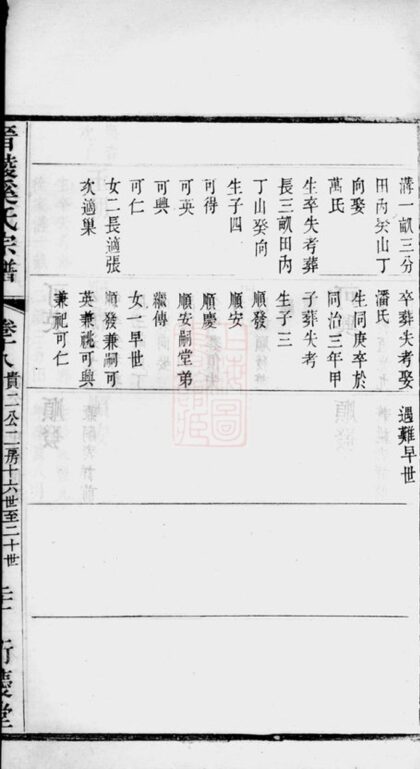 溝一畝三分
田內癸山丁
向娶
萬氏
生卒失考葬
長三畝田內
丁山癸向
生子四
可得
可英
可興
可仁
女二長適張
次適巢
卒失考娶
潘氏
生同庚卒於
同治三年甲
子葬失考
生子三
順發
順安
順慶
順安嗣堂弟
繼傳
女一早世
順發兼嗣可
英兼祧可興
兼祀可仁
遇難早世
晉陵奚氏宗譜
卷十八
貴二公二房十六世至二十世
衍慶堂